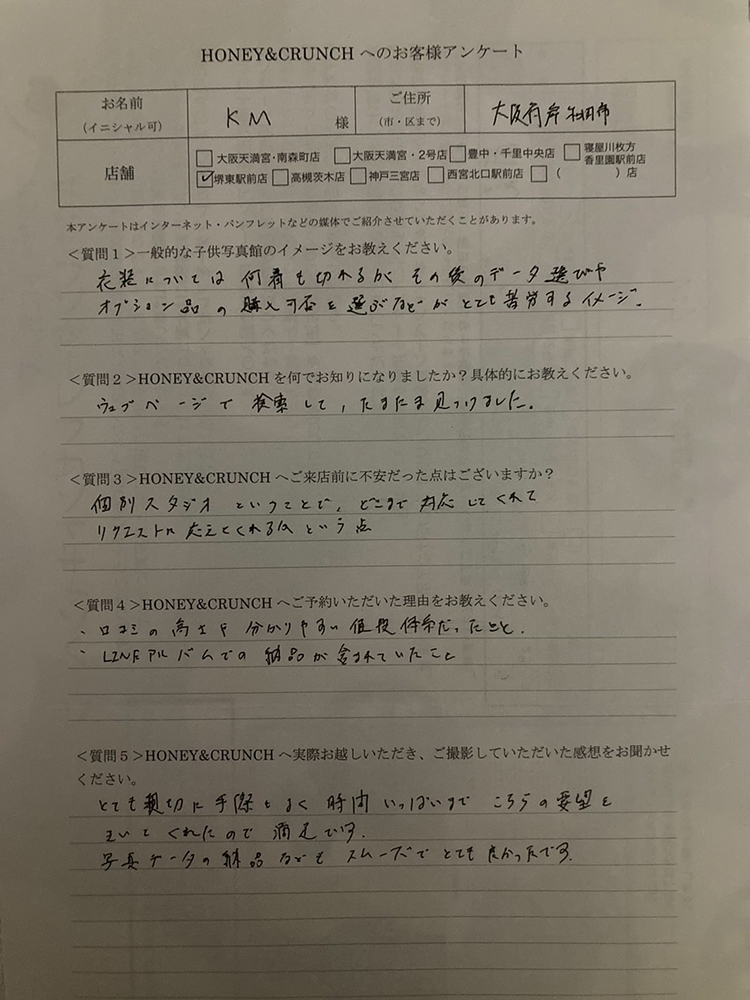 HONEY&CRUNCH へのお客様アンケート
お名前
(イニシャル可)
KM
様
ご住所
(市・区まで)
大阪府岸和田市
店舗
大阪天満宮・南森町店
大阪天満宮・2号店
豊中・千里中央店
寝屋川枚方
香里園駅前店
堺東駅前店
高槻茨木店
神戸三宮店
西宮北口駅前店
( )店
本アンケートはインターネット・パンフレットなどの媒体でご紹介させていただくことがあります。
<質問1>一般的な子供写真館のイメージをお教えください。
衣装については何着も切れるが その後のデータ選びや
オプション品の購入可否を選ぶなどがとても苦労するイメージ.
<質問2>HONEY&CRUNCH を何でお知りになりましたか?具体的にお教えください。
ウェブページで検索して, たまたま見つけました。
<質問3>HONEY&CRUNCH へご来店前に不安だった点はございますか?
個別スタジオということで, どこまで対応してくれて
リクエストに応えてくれるかという点
<質問4>HONEY&CRUNCH へご予約いただいた理由をお教えください。
・口コミの高さや分かりやすい値段体系だったこと.
・LINEアルバムでの納品が含まれていたこと
<質問5>HONEY&CRUNCH へ実際お越しいただき、ご撮影していただいた感想をお聞かせ
ください。
とても親切に手際もよく時間いっぱいまでこちらの要望を
きいてくれたので満足です.
写真データの納品などもスムーズでとても良かったです.